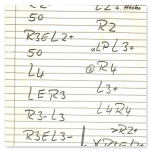 50
R3EL2+
50
L4
LER3
R3-L3
R3EL3-
R2
LPL3+
R4
L3+
L4R4
>R2+